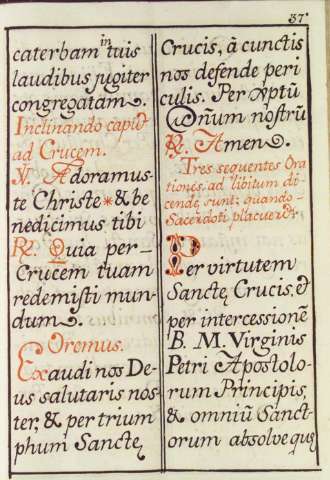 37
caterbam in tuis
laudibus jugiter
congregatam.
Inclinando caput
ad Crucem.
℣. Adoramus
te Christe * & be
nedicimus tibi
℟. Quia per-
Crucem tuam
redemisti mun
dum.
Oremus.
Exaudi nos De-
us salutaris nos
ter, & per trium
phum Sanctę
Crucis, à cunctis
nos defende peri
culis. Per xp̄tū
Dnum nostrū
℟. Amen.
Tres sequentes Ora
tiones, ad libitum di
cende sunt; quando-
Sacerdoti placuerit
Per virtutem
Sanctę Crucis, et
per intercessionē
B. M. Virginis
Petri Apostolo-
rum Principis,
& omniū Sanct
orum absolve quę